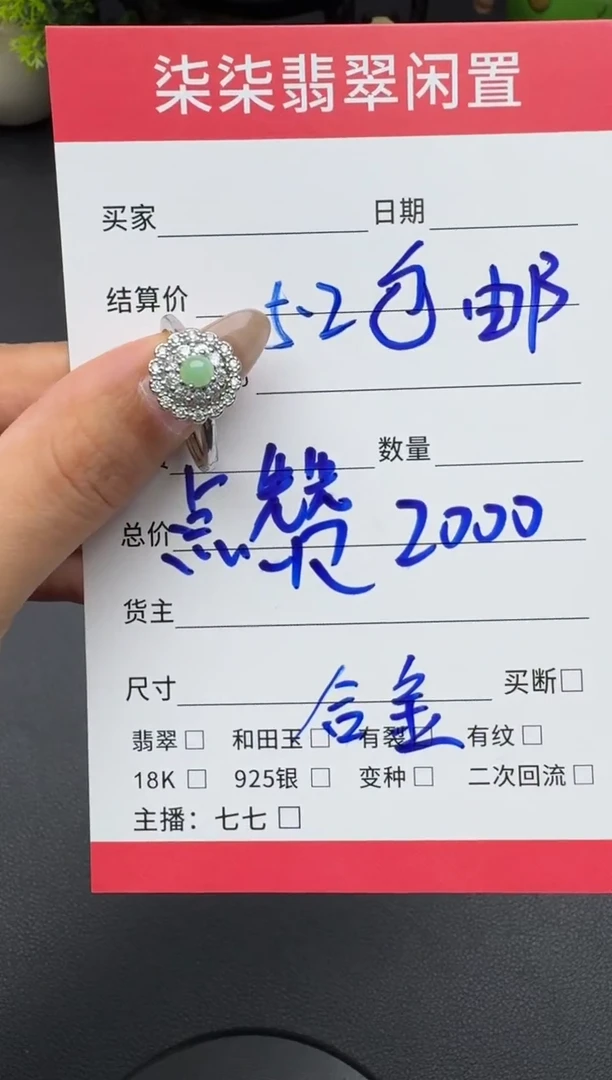 柒柒翡翠闲置
买家 日期
结算价 5.2包邮
数量
总价 点赞2000
货主
尺寸 合金 买断□
翡翠□ 和田玉□ 有裂□ 有纹□
18K□ 925银□ 变种□ 二次回流□
主播：七七□